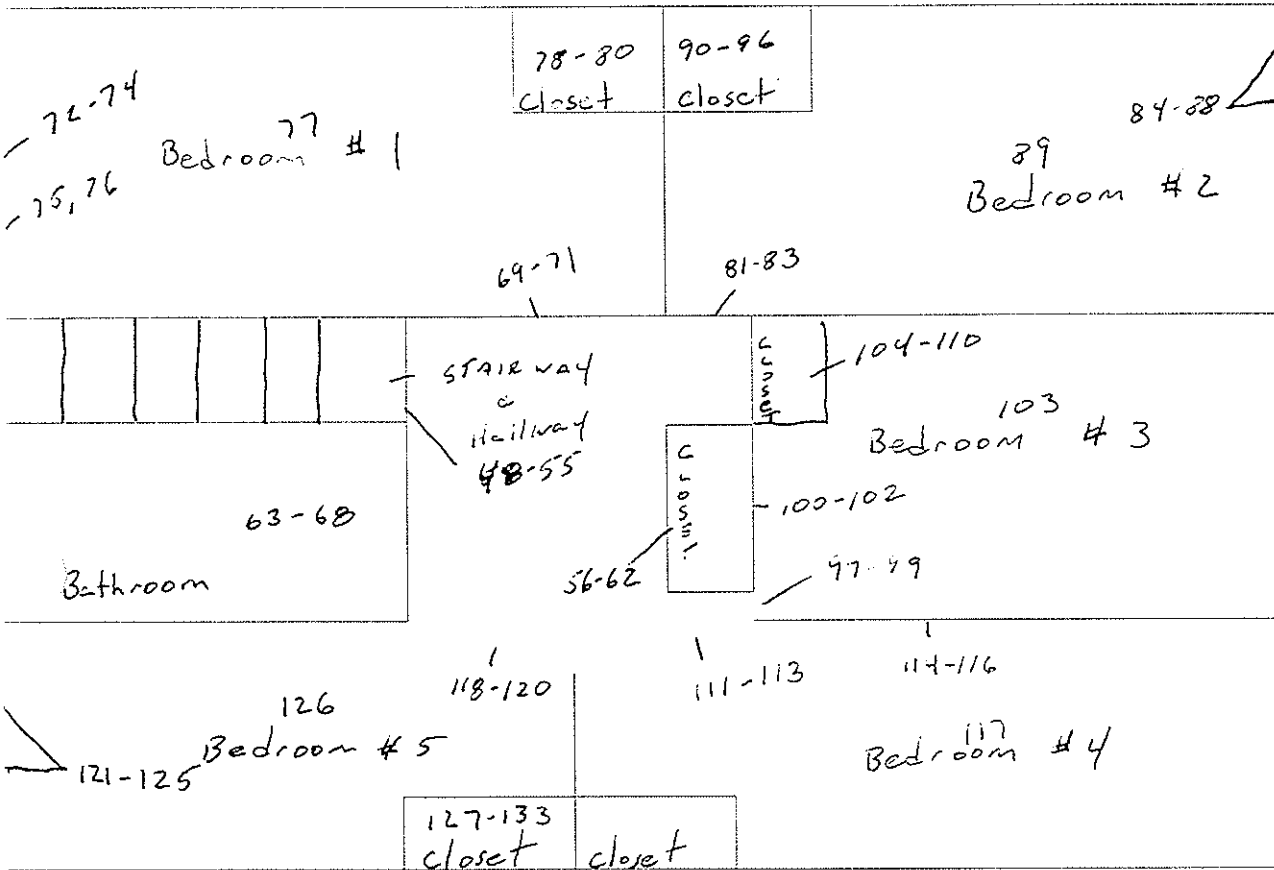 78-80
closet
90-96
closet
72-74
77
Bedroom # 1
75, 76
84-88
89
Bedroom # 2
69-71
81-83
STAIRWAY
Hallway
48-55
closet
104-110
103
Bedroom # 3
closet
100-102
63-68
Bathroom
56-62
97-99
118-120
111-113
114-116
126
Bedroom # 5
121-125
117
Bedroom # 4
127-133
closet
closet